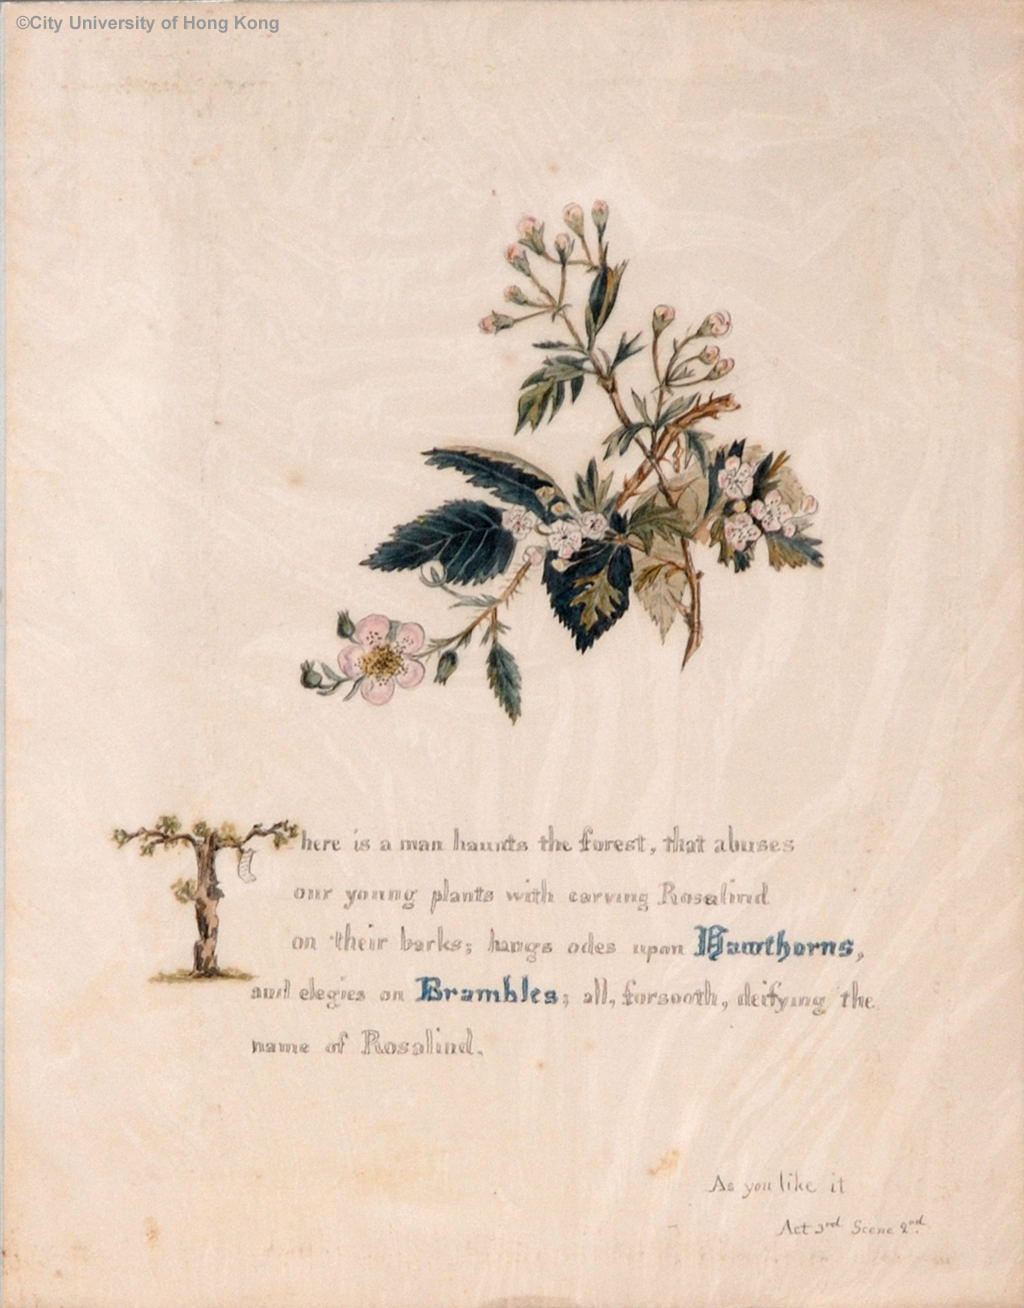 ©City University of Hong Kong
There is a man haunts the forest, that abuses
our young plants with carving Rosalind
on their barks; hangs odes upon Hawthorns,
and elegies on Brambles; all, forsooth, deifying the
name of Rosalind.
As you like it
Act 3rd Scene 2nd.